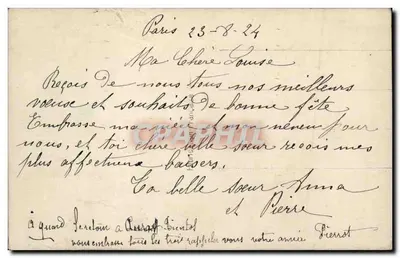 Paris 23-8-24
Ma Chère Louise
Reçois de nous tous nos meilleurs
vœuse et souhaits de bonne fête
Embrasse ma bon neveu pour
nous, et toi chere belle sœur recois mes
plus affectueux baisers.
Ta belle sœur Anna
et Pierre
à quand le retour a bientot
nous tous les trois rappele vous votre amie Pierrot